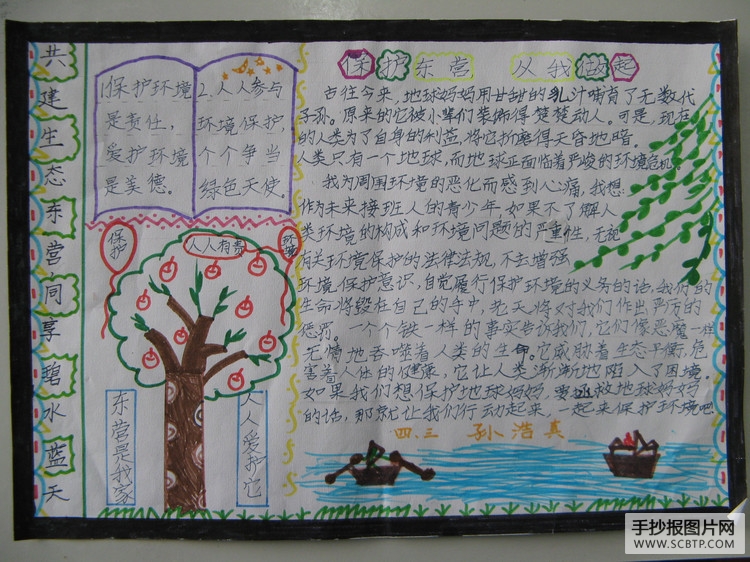 共建生态东营同享碧水蓝天
1.保护环境
是责任，
爱护环境
是美德。
2.人人参与
环境保护，
个个争当
绿色天使
保护
人人有责
环境
东营是我家
人人爱护它
保护东营 从我做起
古往今来，地球妈妈用甘甜的乳汁哺育了无数代
子孙。原来的它被小辈们装饰得楚楚动人。可是，现在
的人类为了自身的利益，将它折磨得天昏地暗。
人类只有一个地球，而地球正面临着严峻的环境危机。
我为周围环境的恶化而感到心痛，我想
作为未来接班人的青少年，如果不了解人
类环境的构成和环境问题的严重性，无视
有关环境保护的法律法规，不去增强
环境保护意识，自觉履行保护环境的义务的话，我们的
生命将毁在自己的手中，老天将对我们作出严厉的
惩罚。一个个铁一样的事实告诉我们，它们像恶魔一样
无情地吞噬着人类的生命。它威胁着生态平衡，危
害着人体的健康，它让人类渐渐地陷入了困境。
如果我们想保护地球妈妈，要拯救地球妈妈
的话，那就让我们行动起来，一起来保护环境吧
四、三 孙浩真
手抄报图片网
WWW.SCBTP.COM